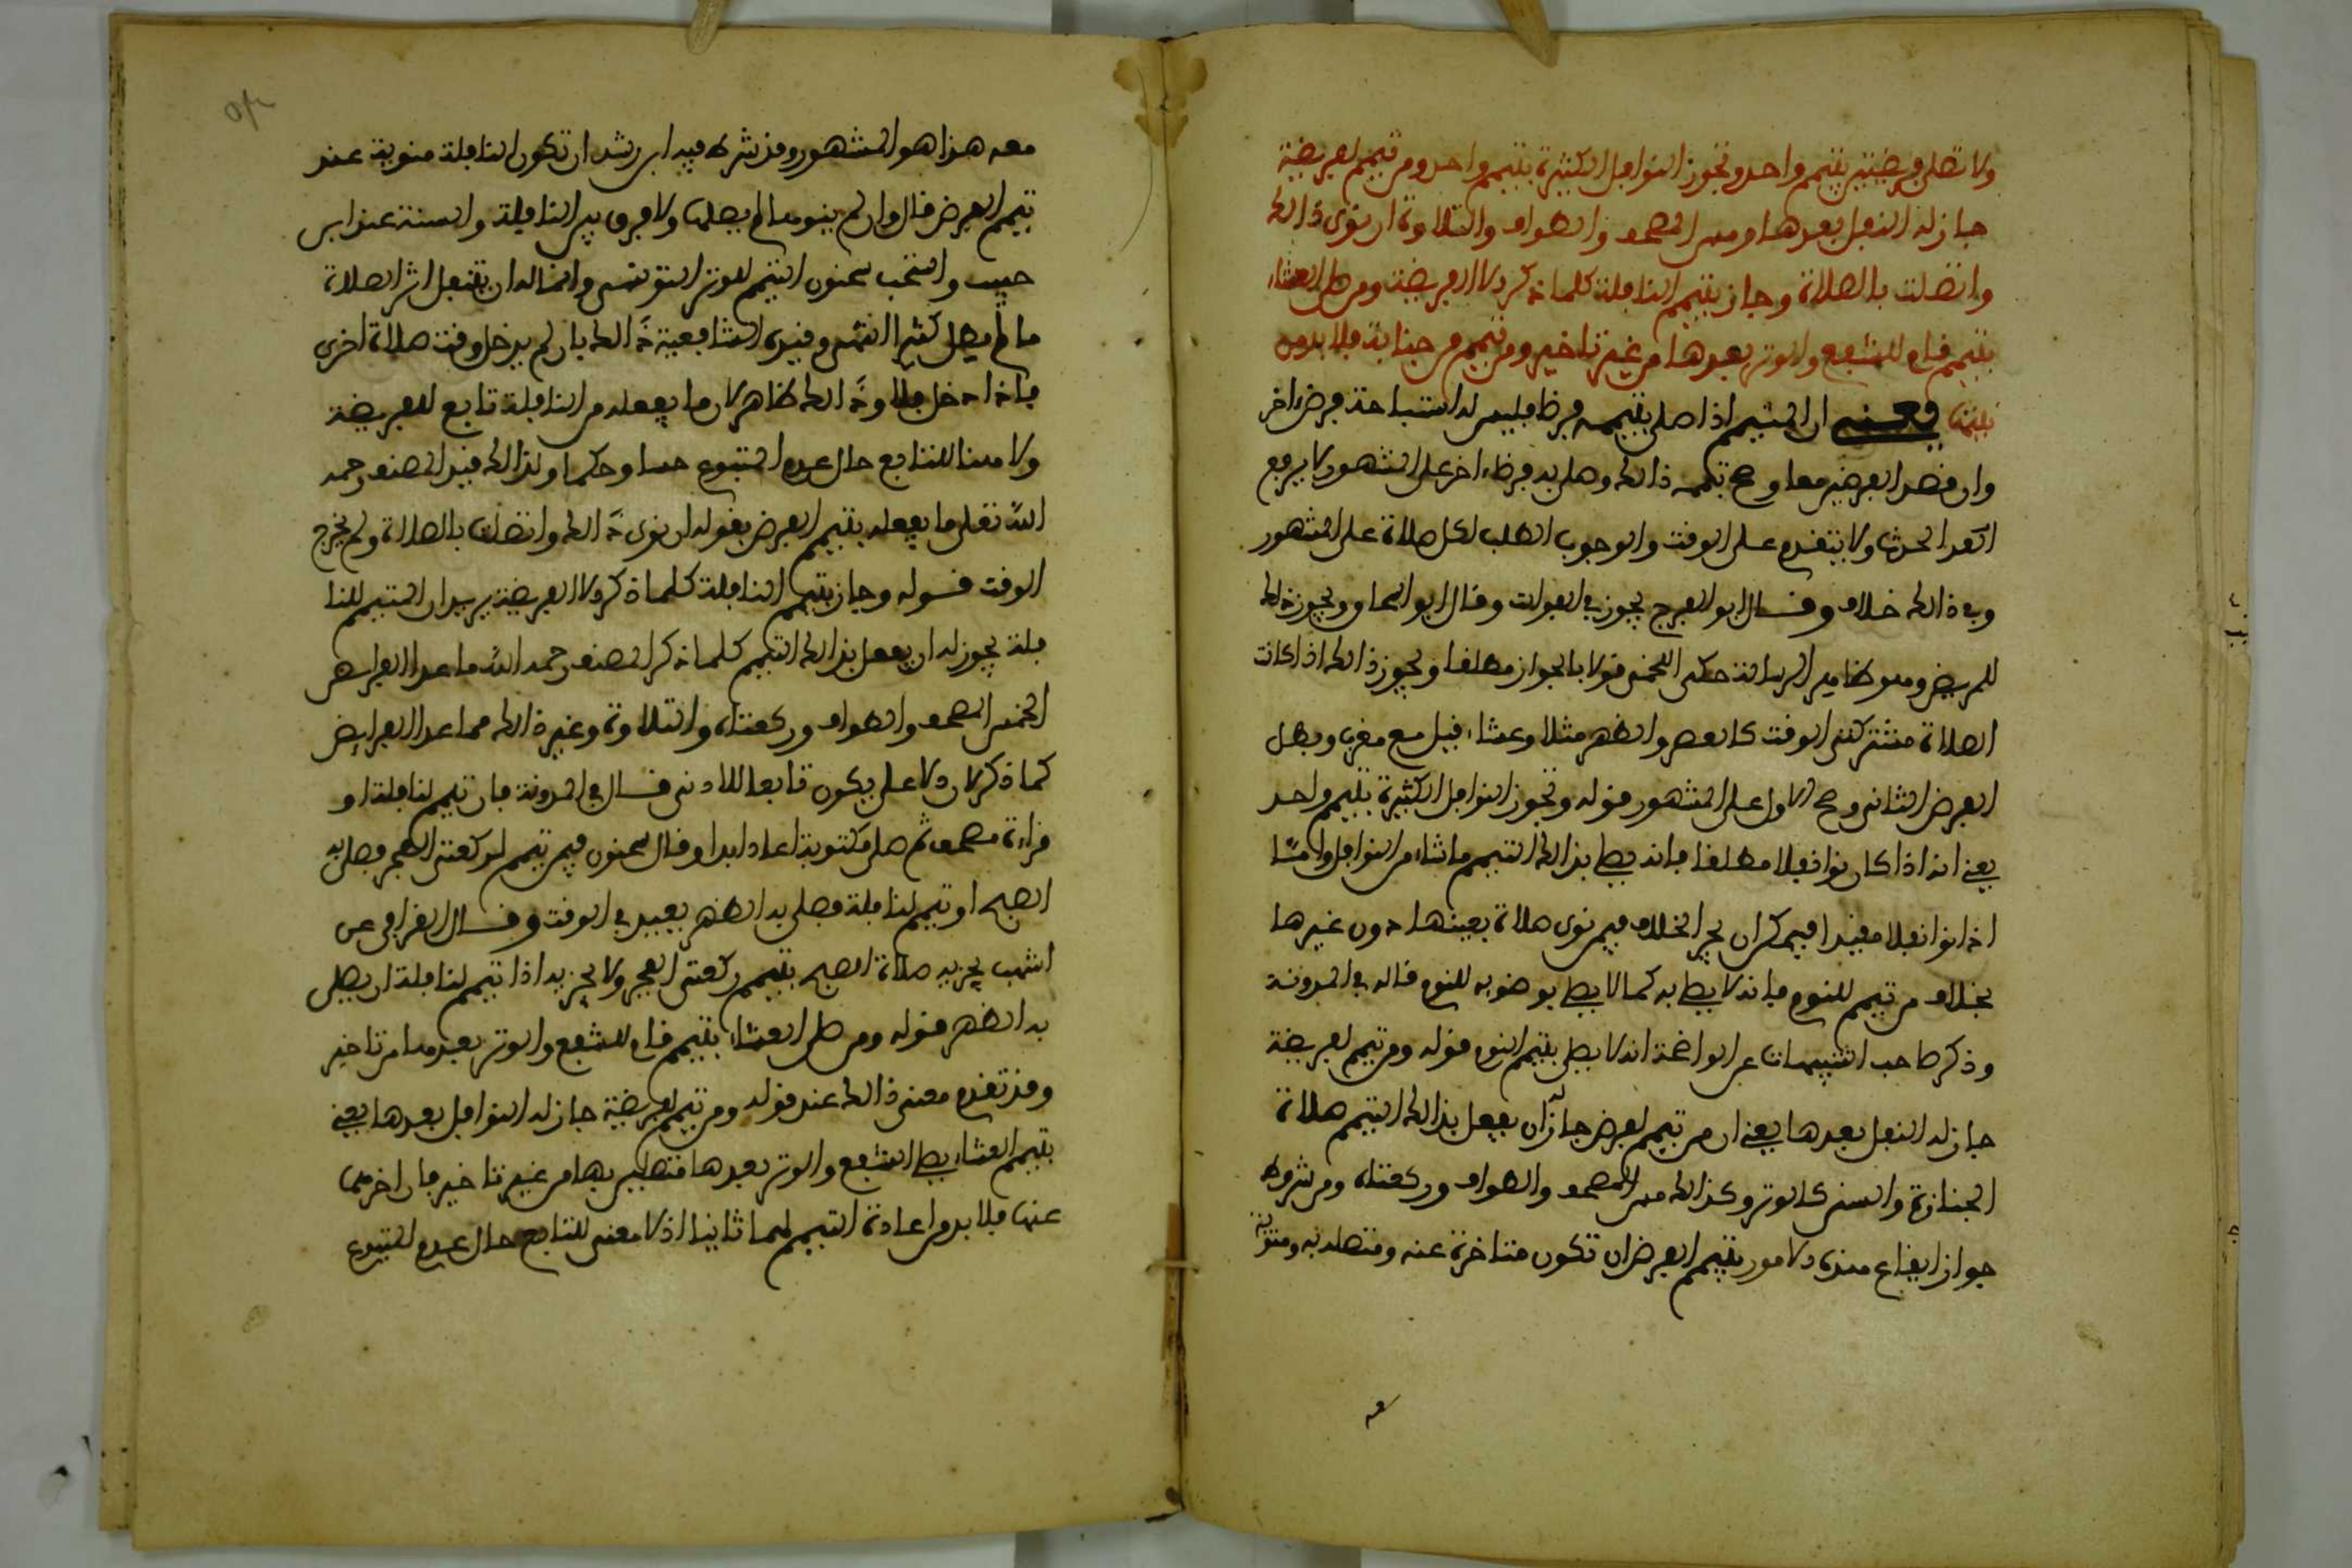 ولا تصلى فريضتين بتيمم واحد وتجوز النوافل الكثيرة بتيمم واحد ومن تيمم لفريضة
جاز له النفل بعدها ومس المصحف والطواف والتلاوة ان نوى ذالك
واتصلت بالصلاة وجاز بتيمم النافلة كلما ذكر الا الفريضة ومن صلى العشاء
بتيمم قام للشفع والوتر بعدها من غير تاخير ومن تيمم من جنابة فلا بد من
نيتها يعني ان المتيمم اذا صلى بتيممه فرضا فليس له استباحة فرض اخر
وان قصد الفرضين معا وصح تيممه ذالك وصلى به فرضا اخر على المشهور لا يرفع
الحدث ولا يتقدم على الوقت والوجوب الطلب لكل صلاة على المشهور
وفي ذالك خلاف وقال ابو الفرج يجوز في الفوائت وقال ابو اسحاق ويجوز ذالك
للمريض وهو ظاهر الرسالة حكى اللخمي قولا بالجواز مطلقا ويجوز ذالك اذا كانت
الصلاة مشتركتي الوقت كالعصر والظهر مثلا وعشاء قبل مع مغرب وبطل
الفرض الثاني وصح الاول على المشهور قوله وتجوز النوافل الكثيرة بتيمم واحد
يعني انه اذا كان نوا نفلا مطلقا فانه يصلي بذالك التيمم ما شاء من النوافل واما
اذا نوا نفلا مقيدا فيمكن ان يجري الخلاف فيمن نوى صلاة بعينها دون غيرها
بخلاف من تيمم للنوم فانه لا يصلي به كما لا يصلي بوضوء للنوم قاله في المدونة
وذكر صاحب التنبيهات عن الواضحة انه لا يصلي بتيمم النوم قوله ومن تيمم لفريضة
جاز له النفل بعدها يعني ان من تيمم لفرض جاز له ان يفعل بذالك التيمم صلاة
الجنازة والسنن كالوتر وكذالك مس المصحف والطواف وركعتاه ومن شروط
جواز ايقاع هذه الامور بتيمم الفرض ان تكون متاخرة عنه ومتصلة به ومنوية
معه هذا هو المشهور وقد شرط فيه ابن رشد ان تكون النافلة منوية عند
تيمم الفرض قال وان لم ينوها لم يصلها ولا فرق بين النافلة والسنة عند ابن
حبيب واستحب سحنون التيمم للوتر التونسي وانما له ان يتنفل اثر الصلاة
ما لم يطل كثيرا اللخمي وقيده الشافعية ذالك بان لم يدخل وقت صلاة اخرى
فاذا دخل فلا وذالك ظاهر لان ما يفعله من النافلة تابع للفريضة
ولا معنا للتابع حال عدم المتبوع حسا وحكما ولذالك قيد المصنف رحمه
الله تعلى ما يفعله بتيمم الفرض بقوله ان نوى ذالك واتصلت بالصلاة ولم يخرج
الوقت قوله وجاز بتيمم النافلة كلما ذكر الا الفريضة يريد ان المتيمم للنا
فلة يجوز له ان يفعل بذالك التيمم كلما ذكر المصنف رحمه الله ما عدا الفرايض
الخمس المصحف والطواف وركعتاه والتلاوة وغير ذالك مما عدا الفرايض
كما ذكر لان الاعلى يكون تابعا للادنى قال في المدونة فان تيمم لنافلة او
قراءة مصحف ثم صلى مكتوبة اعاد ابدا وقال سحنون فيمن تيمم لركعتي الفجر فصلى به
الصبح او تيمم لنافلة فصلى به الظهر يعيد في الوقت وقال القرافي عن
اشهب يجزيه صلاة الصبح بتيمم ركعتي الفجر ولا يجزيه اذا تيمم لنافلة ان يصلي
به الظهر قوله ومن صلى العشاء بتيمم قام للشفع والوتر بعدها من تاخير
وقد تقدم معنى ذالك عند قوله ومن تيمم لفريضة جاز له النوافل بعدها يعني
بتيمم العشاء يصلي الشفع والوتر بعدها متصلين بها من غير تاخير فان اخرهما
عنها فلا بد من اعادة التيمم لهما ثانيا اذ لا معنى للتابع حال عدم المتبوع